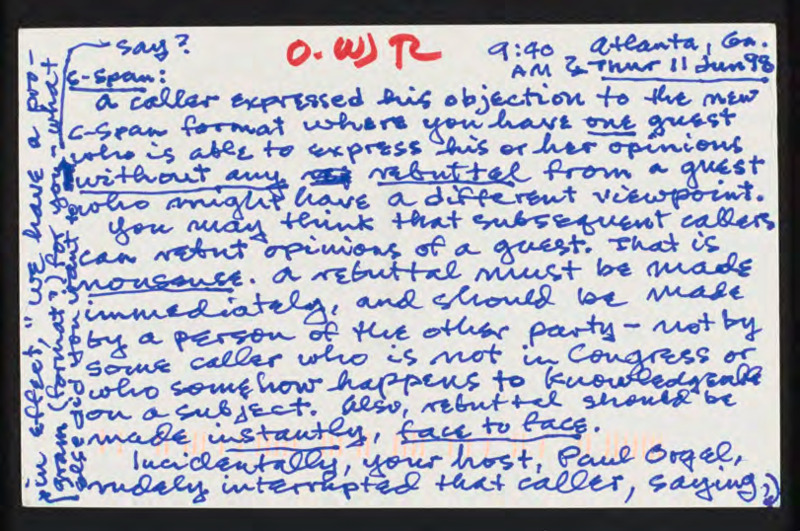 O. W) R
9:40 Atlanta, Ga.
AM & Thur 11 Jun 98
C-Span:
A caller expressed his objection to the new
C-Span format where you have one guest
who is able to express his or her opinions
without any rebuttal from a guest
who might have a different viewpoint.
You may think that subsequent callers
can rebut opinions of a guest. That is
nonsense. A rebuttal must be made
immediately, and should be made
by a person of the other party - not by
some caller who is not in Congress or
who somehow happens to knowledgeable
on a subject. Also, rebuttal should be
made instantly, face to face.
Incidentally, your host, Paul Orgel,
rudely interrupted that caller, saying,
in effect, "we have a pro-
gram (format?) for you - what
else did you want to
say?